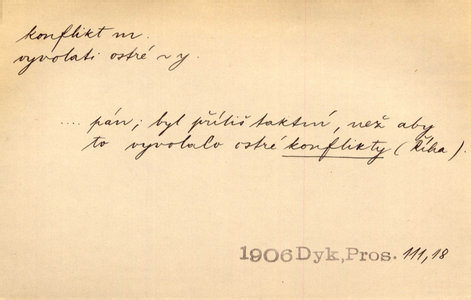 konflikt m.
vyvolati ostré ~y.
.... pán; byl příliš taktní, než aby
to vyvolalo ostré konflikty (Říha).
1906 Dyk, Pros. 111,18